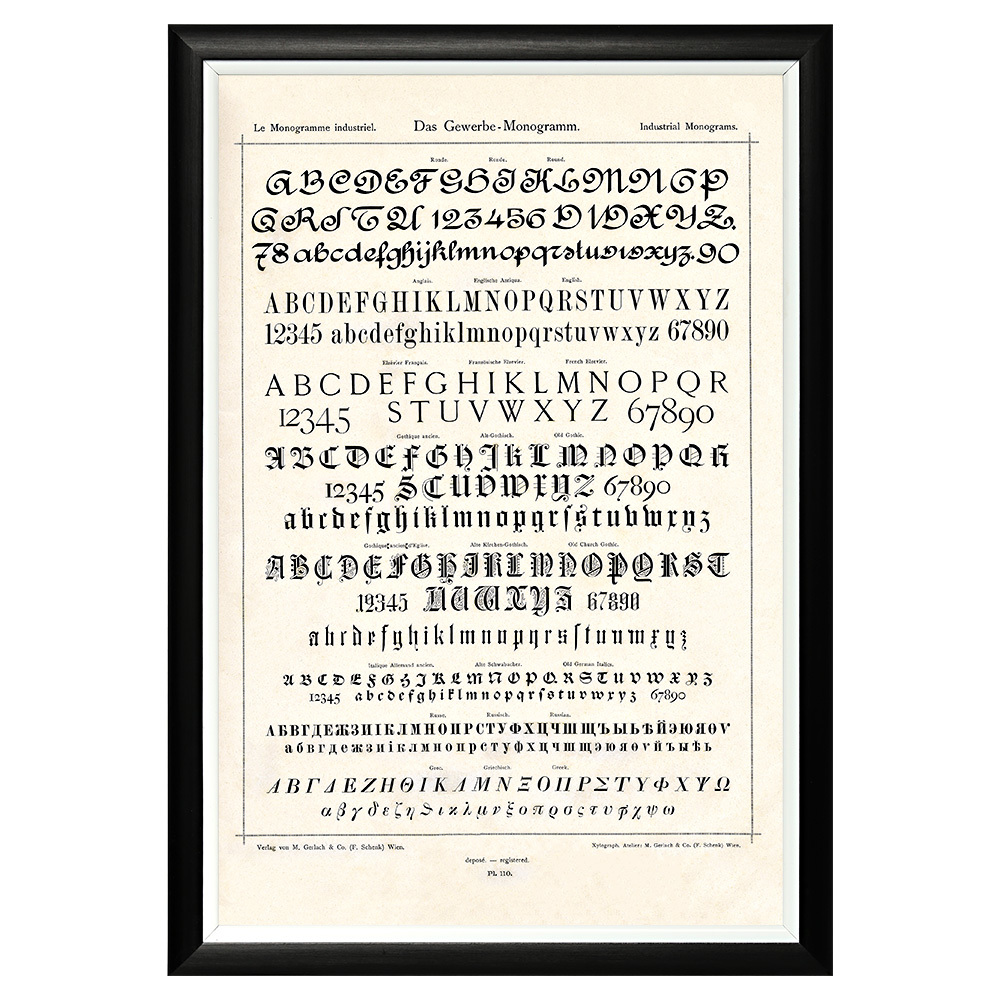 Le Monogramme industriel. Das Gewerbe-Monogramm. Industrial Monograms.
Ronde. Ronde. Round.
ABCDEFGHIKLMNOP
QRSTU 123456 VWXYZ.
78 abcdefghijklmnopqrstuvwxyz. 90
Anglais. Englische Antiqua. English.
ABCDEFGHIKLMNOPQRSTUVWXYZ
12345 abcdefghiklmnopqrstuvwxyz 67890
Elzévier Français. Französische Elzevier. French Elzevier.
ABCDEFGHIKLMNOPQR
12345 STUVWXYZ 67890
Gothique ancien. Alt-Gothisch. Old Gothic.
ABCDEFGHIKLMNOPQR
12345 STUVWXYZ 67890
abcdefghiklmnopqrſstuvwxyz
Gothique ancien d'Eglise. Alte Kirchen-Gothisch. Old Church Gothic.
ABCDEFGHIKLMNOPQRST
12345 UVWXYZ 67890
abcdefghiklmnopqrsſtuvwxyz
Italique Allemand ancien. Alte Schwabacher. Old German Italics.
ABCDEFGHIKLMNOPQRSTUVWXYZ
12345 abcdefghiklmnopqrſstuvwxyz 67890
Russe. Russisch. Russian.
АБВГДЕЖЗИІКЛМНОПРСТУФХЦЧШЩЪЫЬѢЙЭЮЯѲѴ
абвгдежзиіклмнопрстуфхцчшщэюяѳѵйъыѣь
Grec. Griechisch. Greek.
ΑΒΓΔΕΖΗΘΙΚΛΜΝΞΟΠΡΣΤΥΦΧΨΩ
αβγδεζηϑικλμνξοπρσςτυφχψω
Verlag von M. Gerlach & Co. (F. Schenk) Wien. Xylograph. Atelier: M. Gerlach & Co. (F. Schenk) Wien.
deposé. — registered.
Pl. 110.